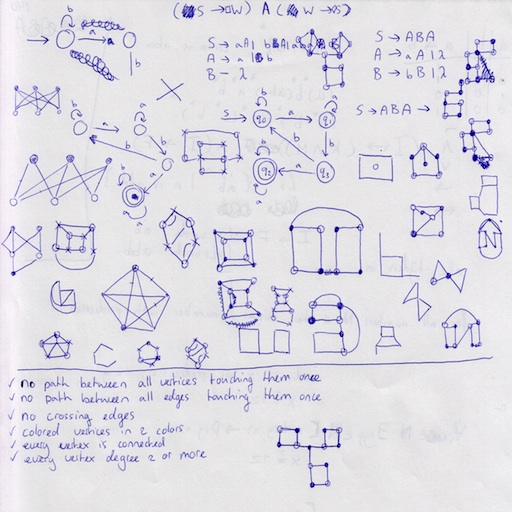 (S → □W) A (W → □S)
S → aA |
A → a |
B - 2
S → ABA
A → aA | λ
B → bB | λ
S → ABA →
b
a
a
b
a
a
b
b
a
b
a
S → q0
a
q1
b
b
a
q2
a
q3
b
a
N
✓ no path between all vertices touching them once
✓ no path between all edges touching them once
✓ no crossing edges
✓ colored vertices in 2 colors
✓ every vertex is connected
✓ every vertex degree 2 or more